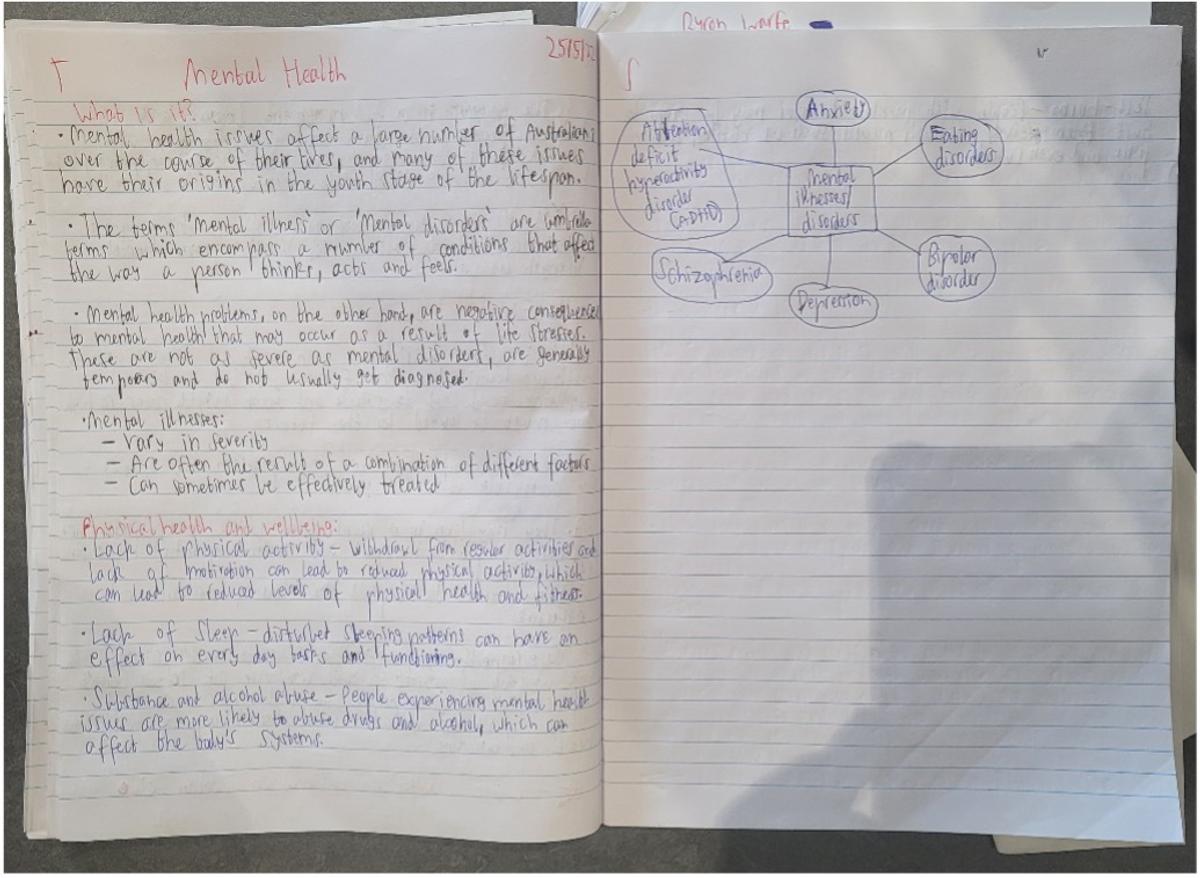 Byron Warfe
25/5/22
Mental Health
What is it?
• Mental health issues affect a large number of Australians
over the course of their lives, and many of these issues
have their origins in the youth stage of the lifespan.
• The terms 'Mental illness' or 'Mental disorders' are umbrella
terms which encompass a number of conditions that affect
the way a person thinks, acts and feels.
• Mental health problems, on the other hand, are negative consequences
to mental health that may occur as a result of life stresses.
These are not as severe as mental disorders, are generally
temporary and do not usually get diagnosed.
• Mental illnesses:
– Vary in severity
– Are often the result of a combination of different factors
– Can sometimes be effectively treated
Physical health and wellbeing:
• Lack of physical activity – withdrawl from regular activities and
lack of motivation can lead to reduced physical activity, which
can lead to reduced levels of physical health and fitness.
• Lack of Sleep – disturbed sleeping patterns can have an
effect on every day tasks and functioning.
• Substance and alcohol abuse – People experiencing mental health
issues are more likely to abuse drugs and alcohol, which can
affect the body's systems.
Anxiety
Attention
deficit
hyperactivity
disorder
(ADHD)
Eating
disorders
Mental
illnesses/
disorders
Schizophrenia
Bipolar
disorder
Depression